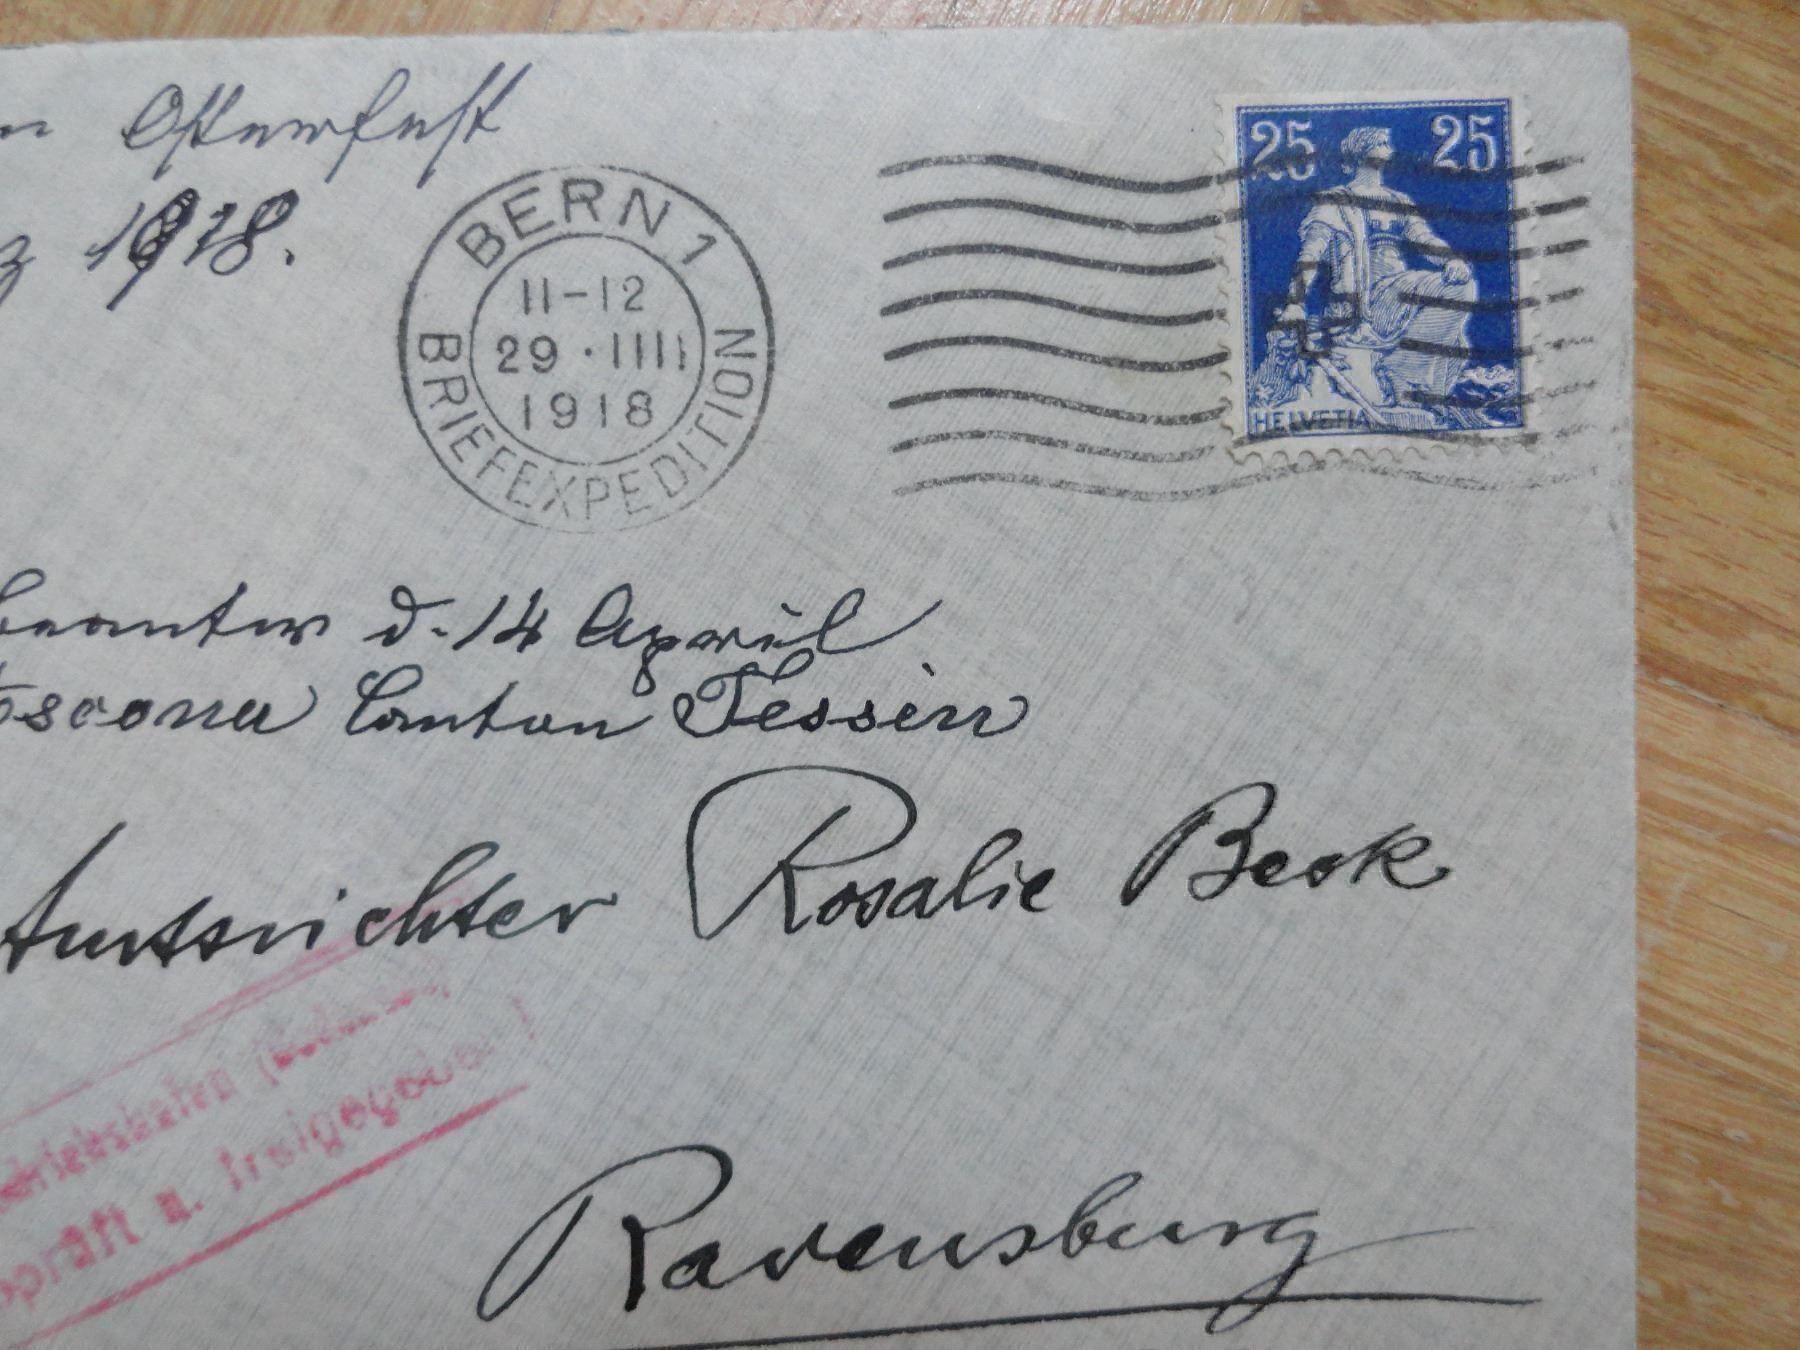 Osterfest
1918.
BERN 1
11-12
29 · IIII
1918
BRIEFEXPEDITION
25 25
HELVETIA
beantw d. 14 April
Ascona Canton Tessin
Amtsrichter Rosalie Beck
Friedrichshafen (Bodensee)
geprüft u. freigegeben!
Ravensburg